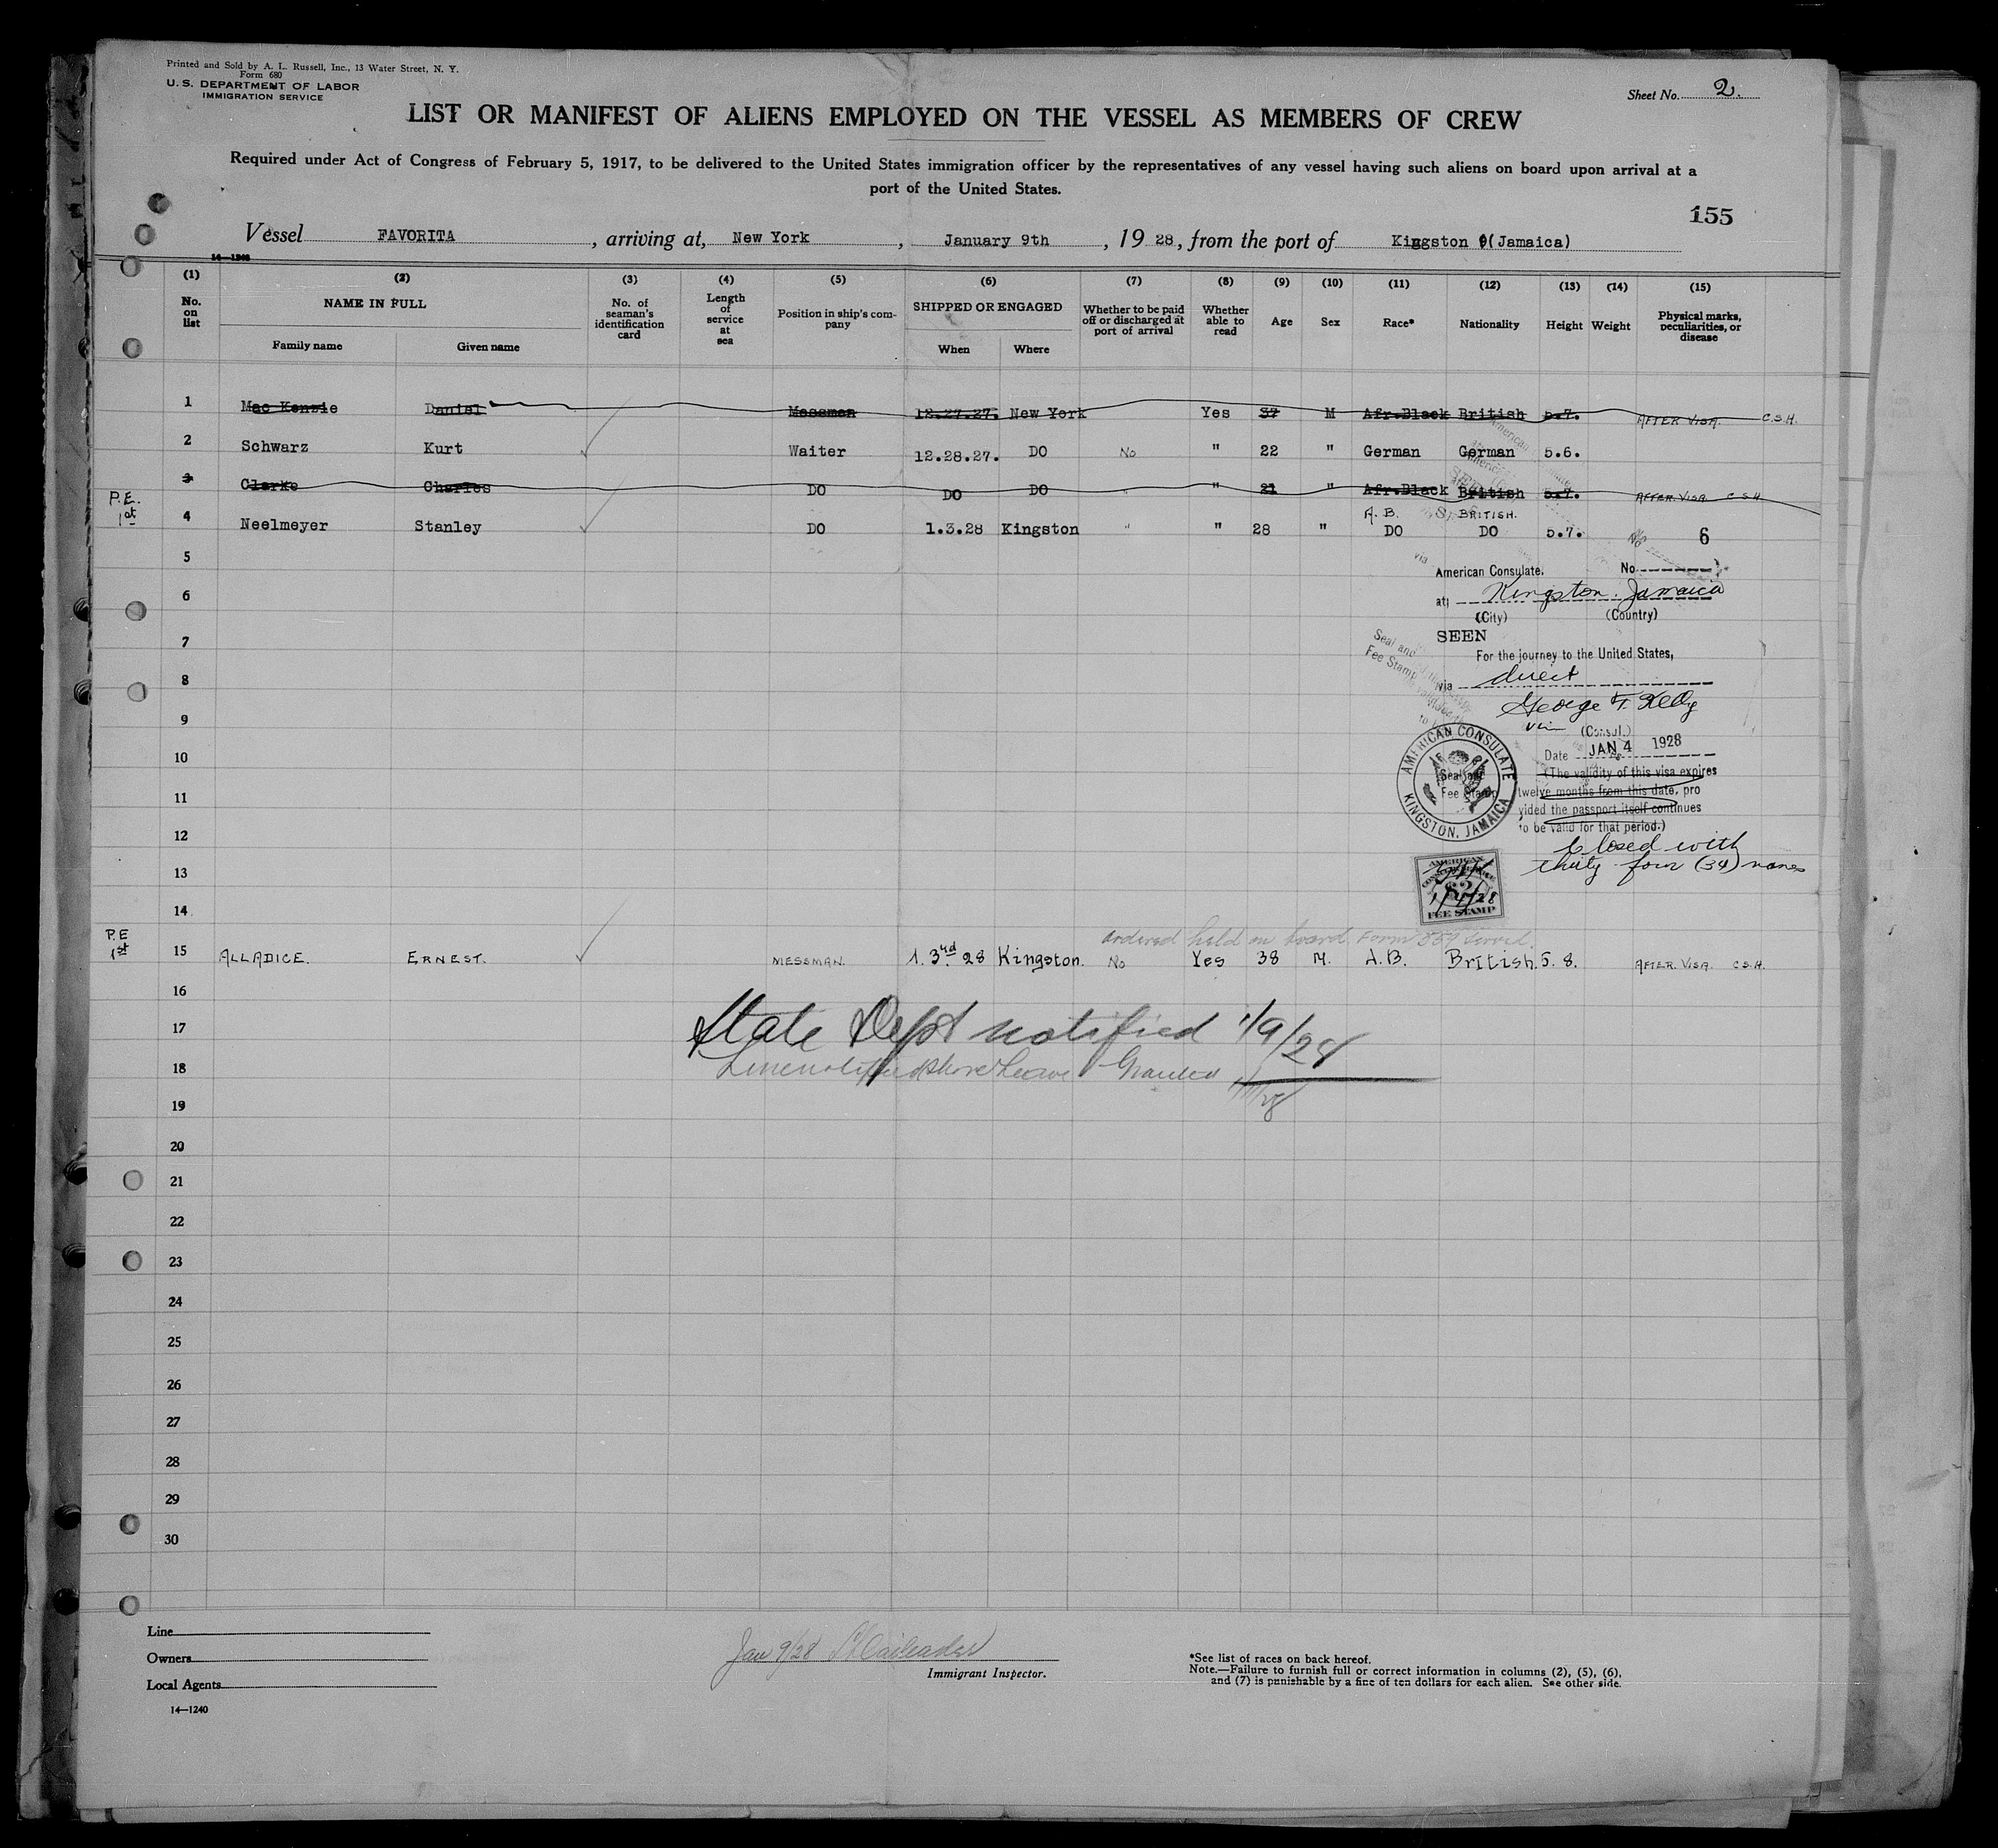 Printed and Sold by A. L. Russell, Inc., 13 Water Street, N. Y.
Form 680
U. S. DEPARTMENT OF LABOR
IMMIGRATION SERVICE
Sheet No. 2.
LIST OR MANIFEST OF ALIENS EMPLOYED ON THE VESSEL AS MEMBERS OF CREW
Required under Act of Congress of February 5, 1917, to be delivered to the United States immigration officer by the representatives of any vessel having such aliens on board upon arrival at a
port of the United States.
155
Vessel FAVORITA, arriving at, New York, January 9th, 19 28, from the port of Kingston (Jamaica)
14—1240
(1) (2) (3) (4) (5) (6) (7) (8) (9) (10) (11) (12) (13) (14) (15)
No. on list NAME IN FULL Family name Given name No. of seaman's identification card Length of service at sea Position in ship's company SHIPPED OR ENGAGED When Where Whether to be paid off or discharged at port of arrival Whether able to read Age Sex Race* Nationality Height Weight Physical marks, peculiarities, or disease
1 Mac Kenzie Daniel Messman 12.27.27. New York Yes 37 M Afr.Black British 5.7. AFTER VISA. C.S.H.
2 Schwarz Kurt Waiter 12.28.27. DO No " 22 " German German 5.6.
3 Clarke Charles DO DO DO " " 21 " Afr.Black British 5.7. AFTER VISA C S H
P.E. 1st
A. B. BRITISH.
4 Neelmeyer Stanley DO 1.3.28 Kingston " " 28 " DO DO 5.7. No 6
5
American Consulate. No
6
at Kingston. Jamaica
(City) (Country)
7
SEEN
For the journey to the United States,
Seal and
Fee Stamp
8
via direct
9
George F. Kelly
(Consul.)
10
Date JAN 4 1928
AMERICAN CONSULATE KINGSTON, JAMAICA
Seal and
Fee Stamp
(The validity of this visa expires
11
twelve months from this date, pro
vided the passport itself continues
12
to be valid for that period.)
Closed with
13
thirty four (34) names
AMERICAN
1/4/28
FEE STAMP
14
P.E 1st
ordered held on board Form 889 served
15 ALLADICE. ERNEST. MESSMAN. 1. 3rd 28 Kingston. No Yes 38 M. A.B. British. 5. 8. AFTER. VISA. C S.H.
16
17 State Dept notified 1/9/28
18 Line notified Shore Leave Granted 1/11/28
19
20
21
22
23
24
25
26
27
28
29
30
Line
Owners
Local Agents
14—1240
Jan 9/28
Immigrant Inspector.
*See list of races on back hereof.
Note.—Failure to furnish full or correct information in columns (2), (5), (6),
and (7) is punishable by a fine of ten dollars for each alien. See other side.